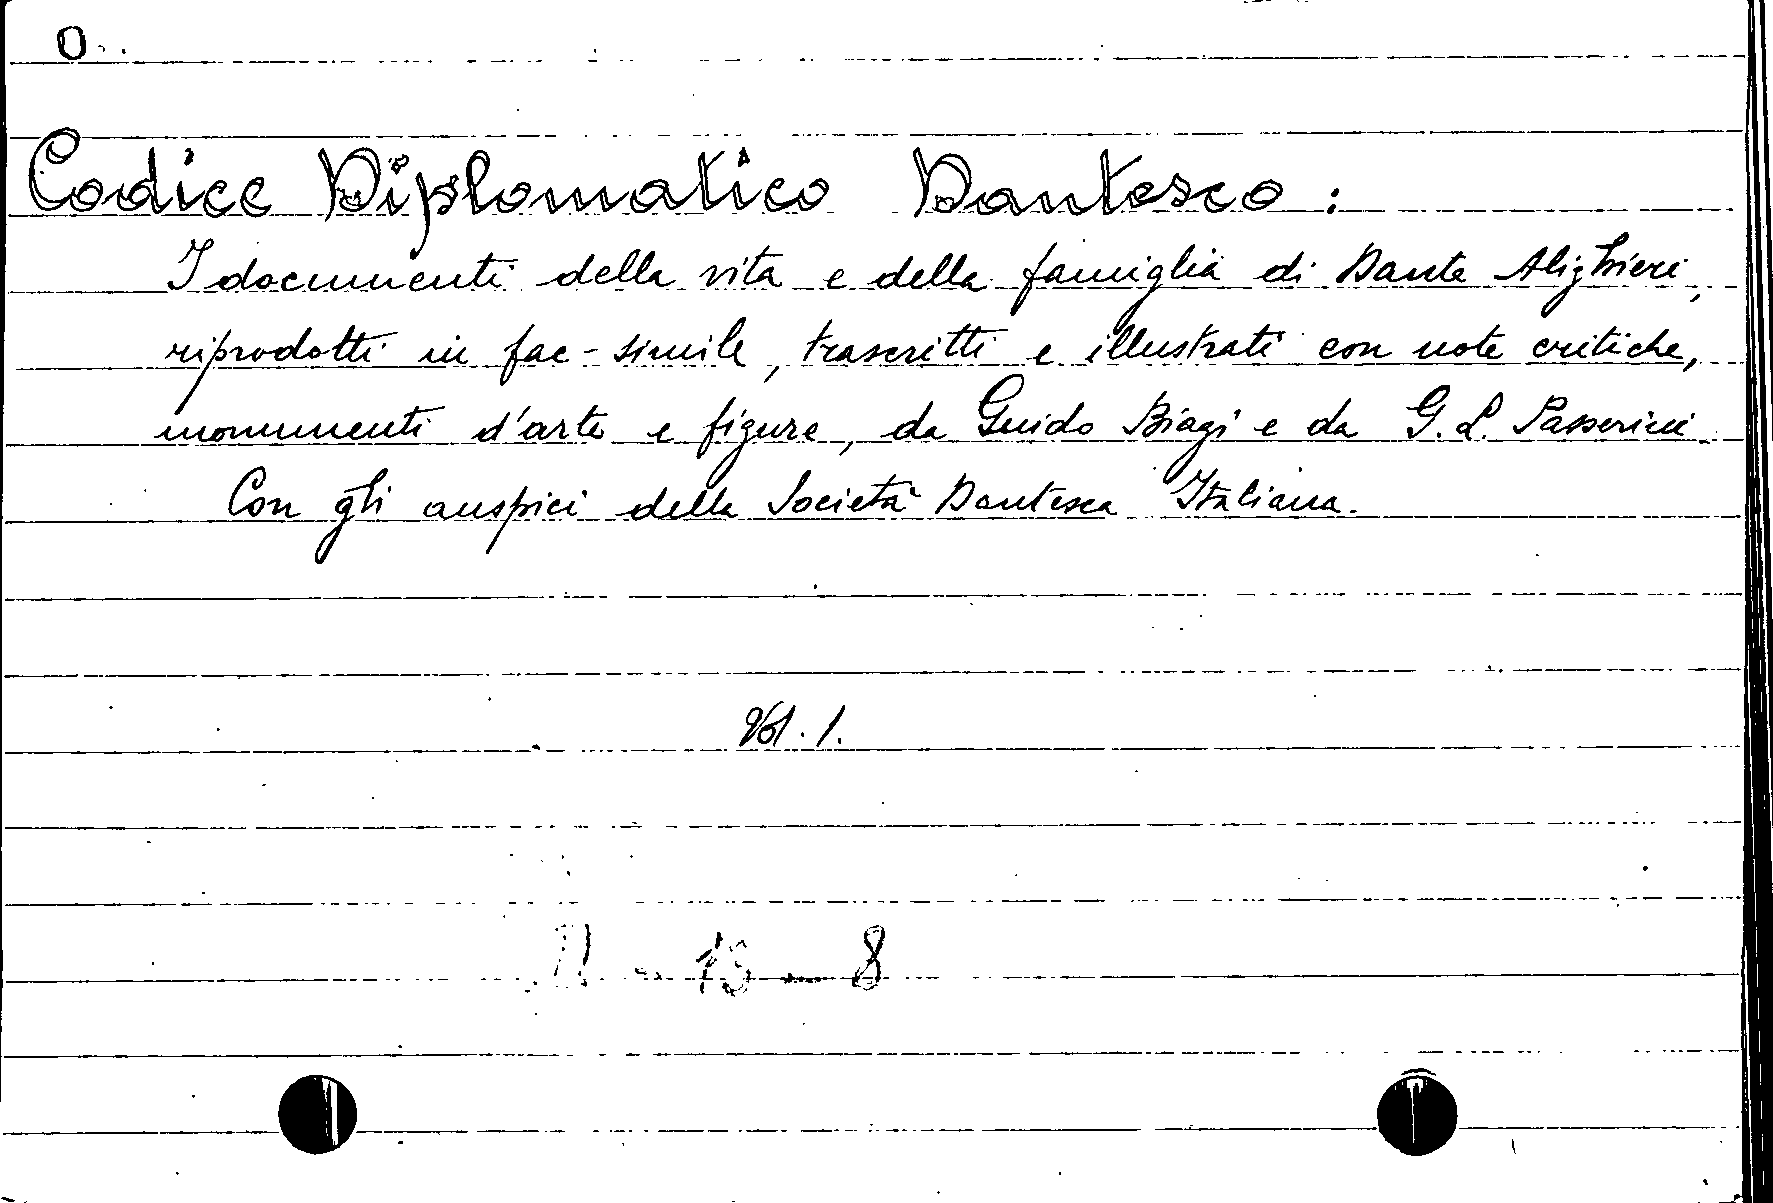 O
Codice Diplomatico Dantesco :
I documenti della vita e della famiglia di Dante Alighieri,
riprodotti in fac-simile, trascritti e illustrati con note critiche,
monumenti d'arte e figure, da Guido Biagi e da G. L. Passerini.
Con gli auspici della Società Dantesca Italiana.
Vol. 1.
- 15 - 8